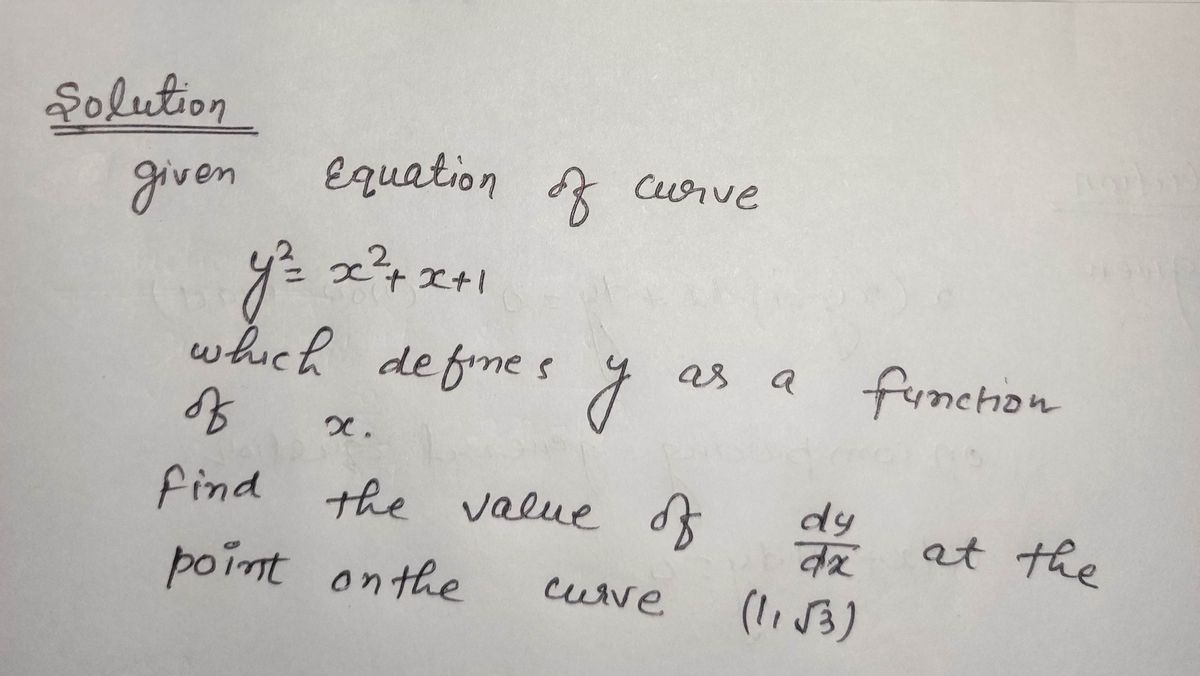 Solution
given Equation of curve
y²= x²+ x+1
which defines y as a function
of x.
find the value of dy/dx at the
point on the curve (1, √3)